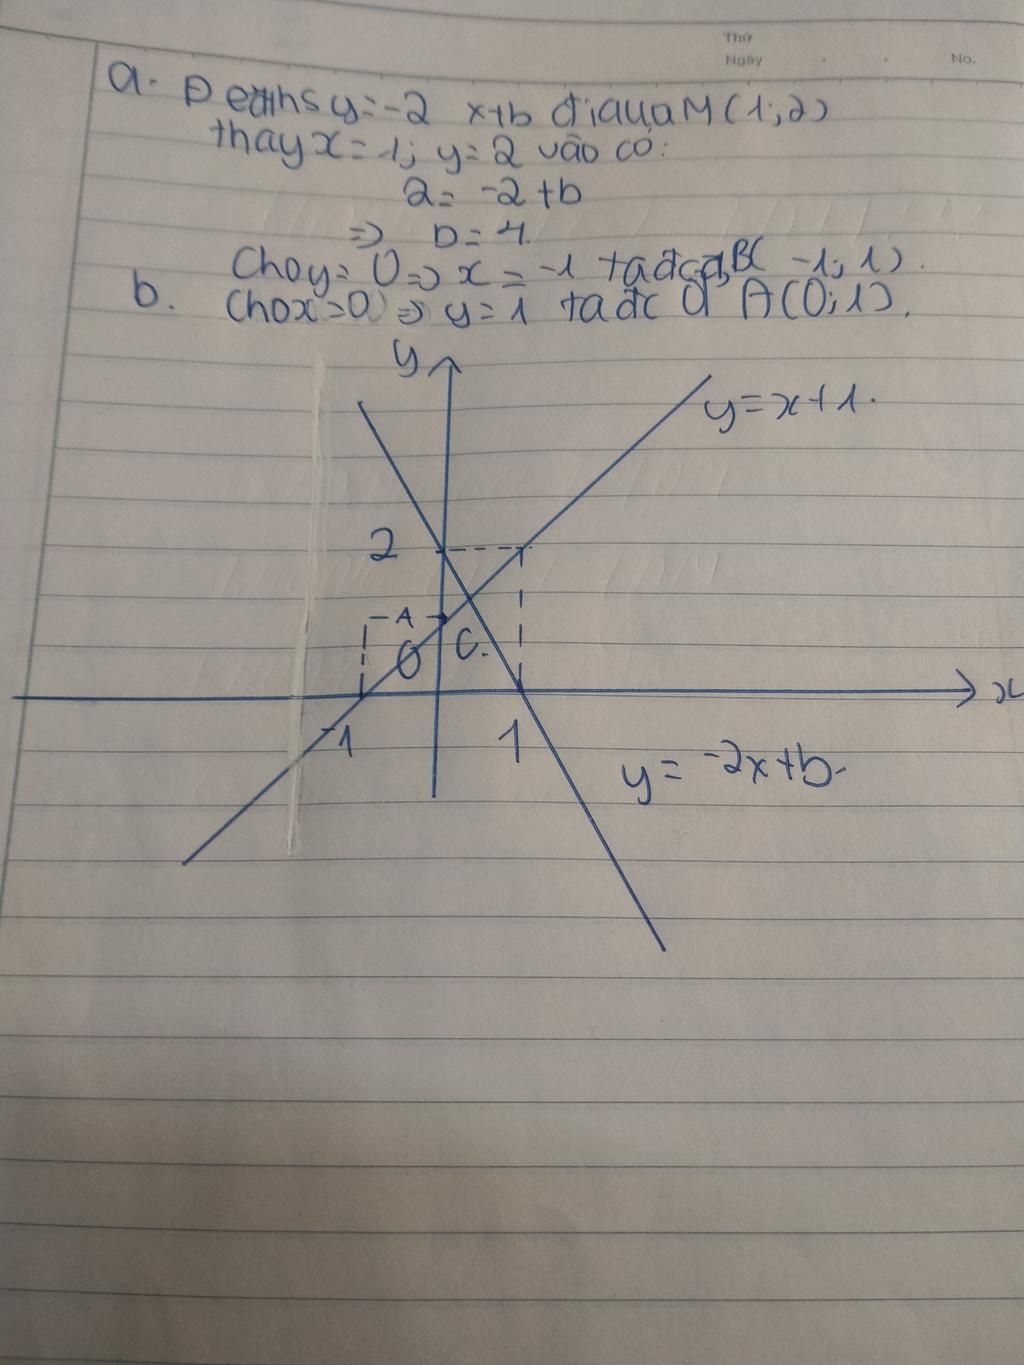 Thứ
Ngày
No.
a. Để đths y = -2 x+b đi qua M(1;2)
thay x = 1; y = 2 vào có:
2 = -2 + b
=> b = 4.
Cho y = 0 => x = -1 ta đc đ B( -1; 1).
b. Cho x = 0 => y = 1 ta đc đ A(0; 1).
y
y = x + 1.
2
A
O
C.
x
-1
1
y = -2x + b